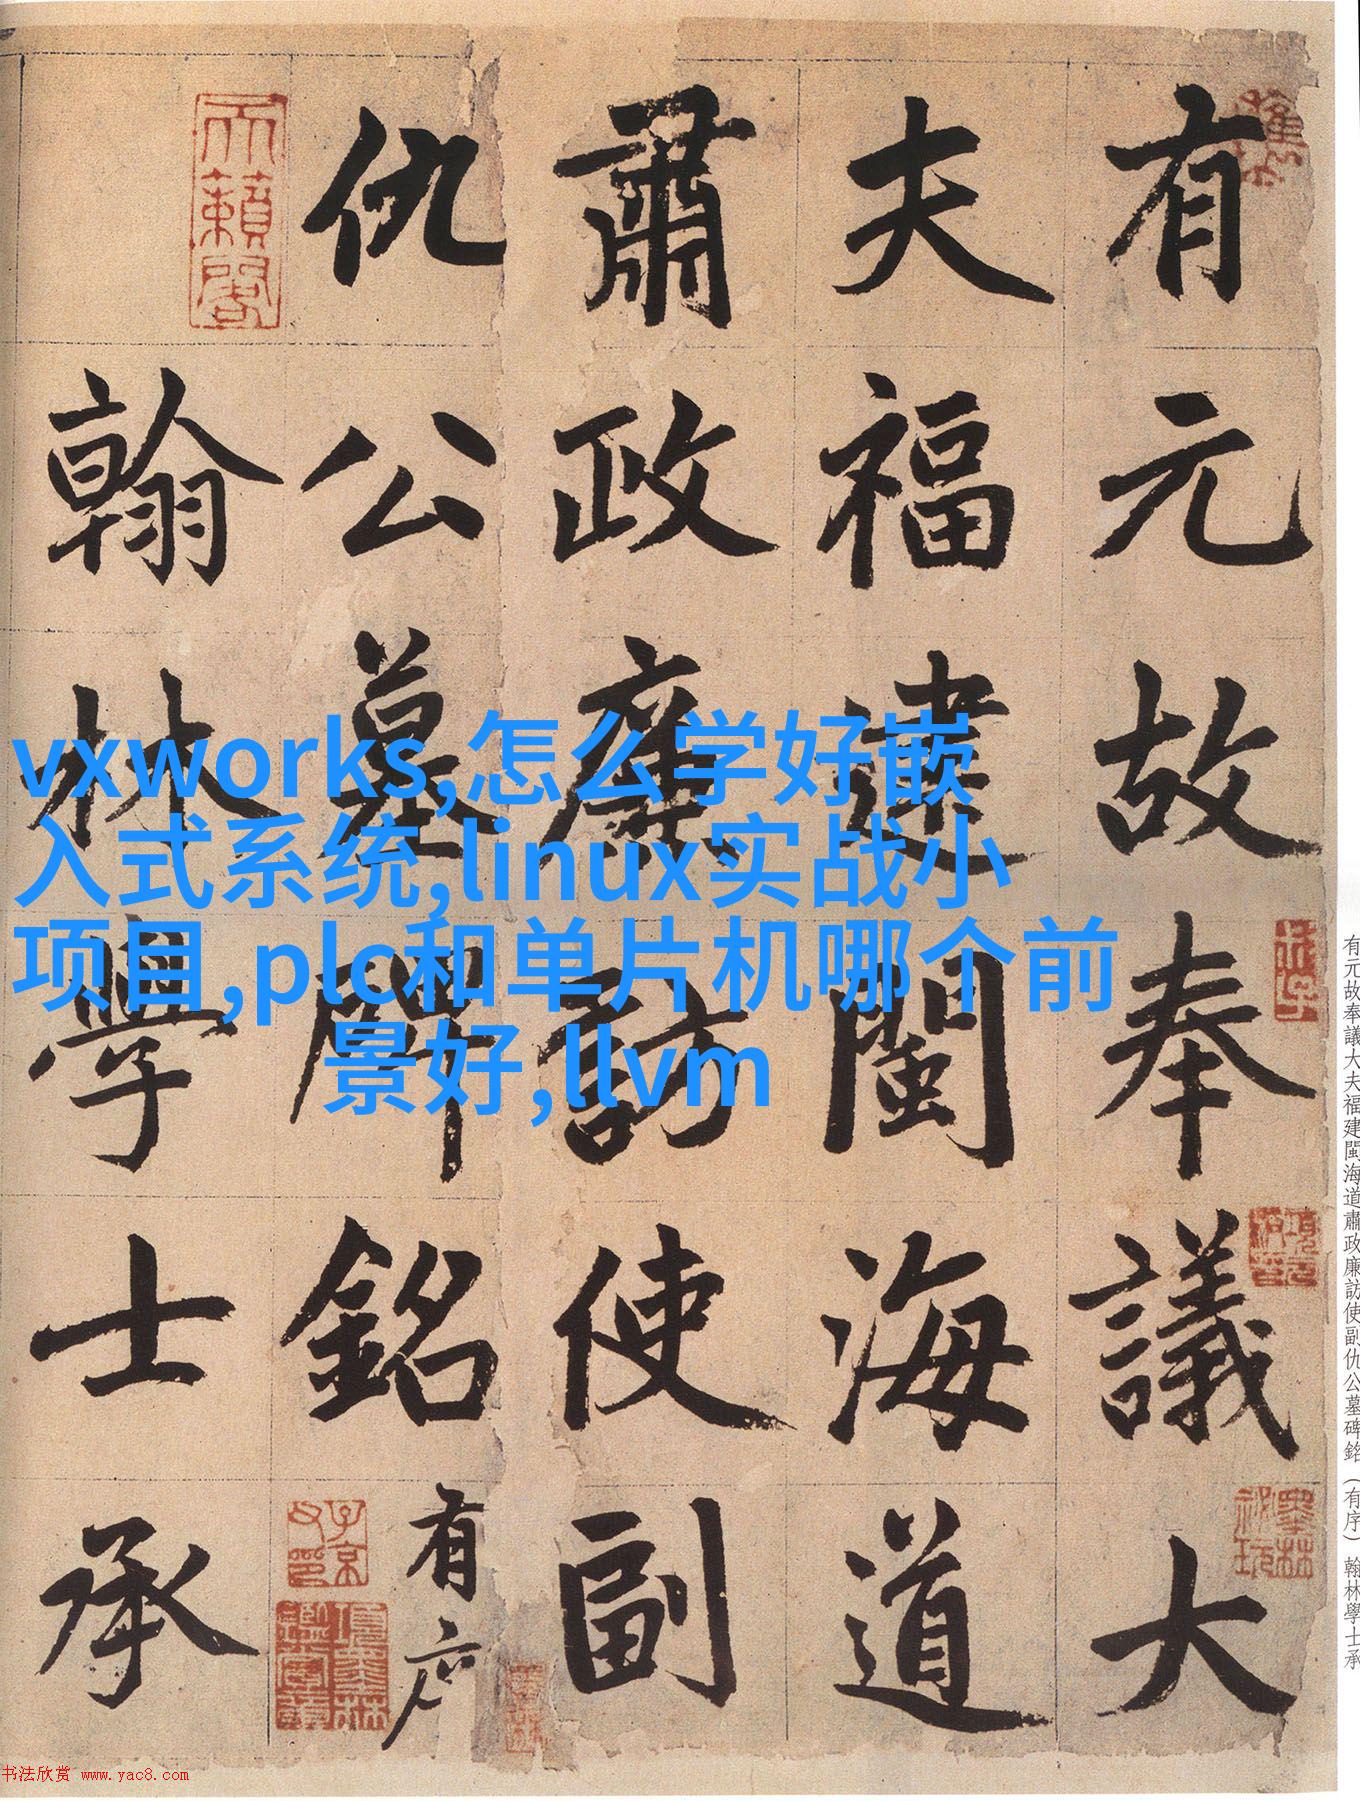 有元故奉議大
夫福建閩海道
肅政廉訪使副
仇公墓碑銘有序
翰林學士承
天籟閣
vxworks,怎么学好嵌
入式系统,linux实战小
项目,plc和单片机哪个前
景好,llvm
有元故奉議大夫福建閩海道肅政廉訪使副仇公墓碑銘（有序）翰林學士承
书法欣赏 www.yac8.com